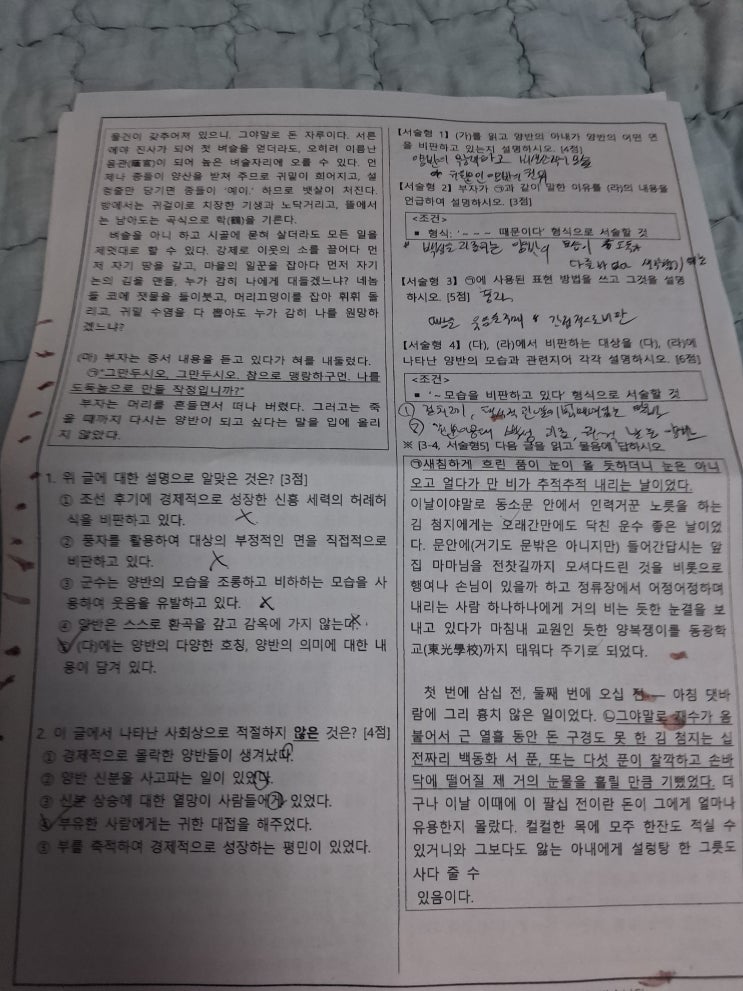 물건이 갖추어져 있으니, 그야말로 돈 자루이다. 서른
에야 진사가 되어 첫 벼슬을 얻더라도, 오히려 이름난
음관(蔭官)이 되어 높은 벼슬자리에 오를 수 있다. 언
제나 종들이 양산을 받쳐 주므로 귀밑이 희어지고, 설
렁줄만 당기면 종들이 '예이.' 하므로 뱃살이 처진다.
방에서는 귀걸이로 치장한 기생과 노닥거리고, 뜰에서
는 남아도는 곡식으로 학(鶴)을 기른다.
벼슬을 아니 하고 시골에 묻혀 살더라도 모든 일을
제멋대로 할 수 있다. 강제로 이웃의 소를 끌어다 먼
저 자기 땅을 갈고, 마을의 일꾼을 잡아다 먼저 자기
논의 김을 맨들, 누가 감히 나에게 대들겠느냐? 네놈
들 코에 잿물을 들이붓고, 머리끄덩이를 잡아 휘휘 돌
리고, 귀밑 수염을 다 뽑아도 누가 감히 나를 원망하
겠느냐?
(마) 부자는 증서 내용을 듣고 있다가 혀를 내둘렀다.
㉠"그만두시오, 그만두시오. 참으로 맹랑하구먼. 나를
도둑놈으로 만들 작정입니까?"
부자는 머리를 흔들면서 떠나 버렸다. 그러고는 죽
을 때까지 다시는 양반이 되고 싶다는 말을 입에 올리
지 않았다.
1. 위 글에 대한 설명으로 알맞은 것은? [3점]
① 조선 후기에 경제적으로 성장한 신흥 세력의 허례허
식을 비판하고 있다.
② 풍자를 활용하여 대상의 부정적인 면을 직접적으로
비판하고 있다.
③ 군수는 양반의 모습을 조롱하고 비하하는 모습을 사
용하여 웃음을 유발하고 있다.
④ 양반은 스스로 환곡을 갚고 감옥에 가지 않는다.
⑤ (다)에는 양반의 다양한 호칭, 양반의 의미에 대한 내
용이 담겨 있다.
2. 이 글에서 나타난 사회상으로 적절하지 않은 것은? [4점]
① 경제적으로 몰락한 양반들이 생겨났다.
② 양반 신분을 사고파는 일이 있었다.
③ 신분 상승에 대한 열망이 사람들에게 있었다.
④ 부유한 사람에게는 귀한 대접을 해주었다.
⑤ 부를 축적하여 경제적으로 성장하는 평민이 있었다.
[서술형 1] (가)를 읽고 양반의 아내가 양반의 어떤 면
을 비판하고 있는지 설명하시오. [4점]
양반이 무능하고
[서술형 2] 부자가 ㉠과 같이 말한 이유를 (라)의 내용을
언급하여 설명하시오. [3점]
<조건>
▪ 형식: '~ ~ ~ 때문이다' 형식으로 서술할 것
백성을 괴롭히는 양반의
[서술형 3] ㉠에 사용된 표현 방법을 쓰고 그것을 설명
하시오. [5점] 풍자
간접적으로 비판
[서술형 4] (다), (라)에서 비판하는 대상을 (다), (라)에
나타난 양반의 모습과 관련지어 각각 설명하시오. [6점]
<조건>
▪ '~ 모습을 비판하고 있다' 형식으로 서술할 것
①
②
※ [3-4, 서술형5] 다음 글을 읽고 물음에 답하시오
㉠새침하게 흐린 품이 눈이 올 듯하더니 눈은 아니
오고 얼다가 만 비가 추적추적 내리는 날이었다.
이날이야말로 동소문 안에서 인력거꾼 노릇을 하는
김 첨지에게는 오래간만에도 닥친 운수 좋은 날이었
다. 문안에(거기도 문밖은 아니지만) 들어간답시는 앞
집 마마님을 전찻길까지 모셔다드린 것을 비롯으로
행여나 손님이 있을까 하고 정류장에서 어정어정하며
내리는 사람 하나하나에게 거의 비는 듯한 눈결을 보
내고 있다가 마침내 교원인 듯한 양복쟁이를 동광학
교(東光學校)까지 태워다 주기로 되었다.
첫 번에 삼십 전, 둘째 번에 오십 전 — 아침 댓바
람에 그리 흉치 않은 일이었다. ㉡그야말로 재수가 옴
붙어서 근 열흘 동안 돈 구경도 못 한 김 첨지는 십
전짜리 백동화 서 푼, 또는 다섯 푼이 찰깍하고 손바
닥에 떨어질 제 거의 눈물을 흘릴 만큼 기뻤었다. 더
구나 이날 이때에 이 팔십 전이란 돈이 그에게 얼마나
유용한지 몰랐다. 컬컬한 목에 모주 한잔도 적실 수
있거니와 그보다도 앓는 아내에게 설렁탕 한 그릇도
사다 줄 수
있음이다.